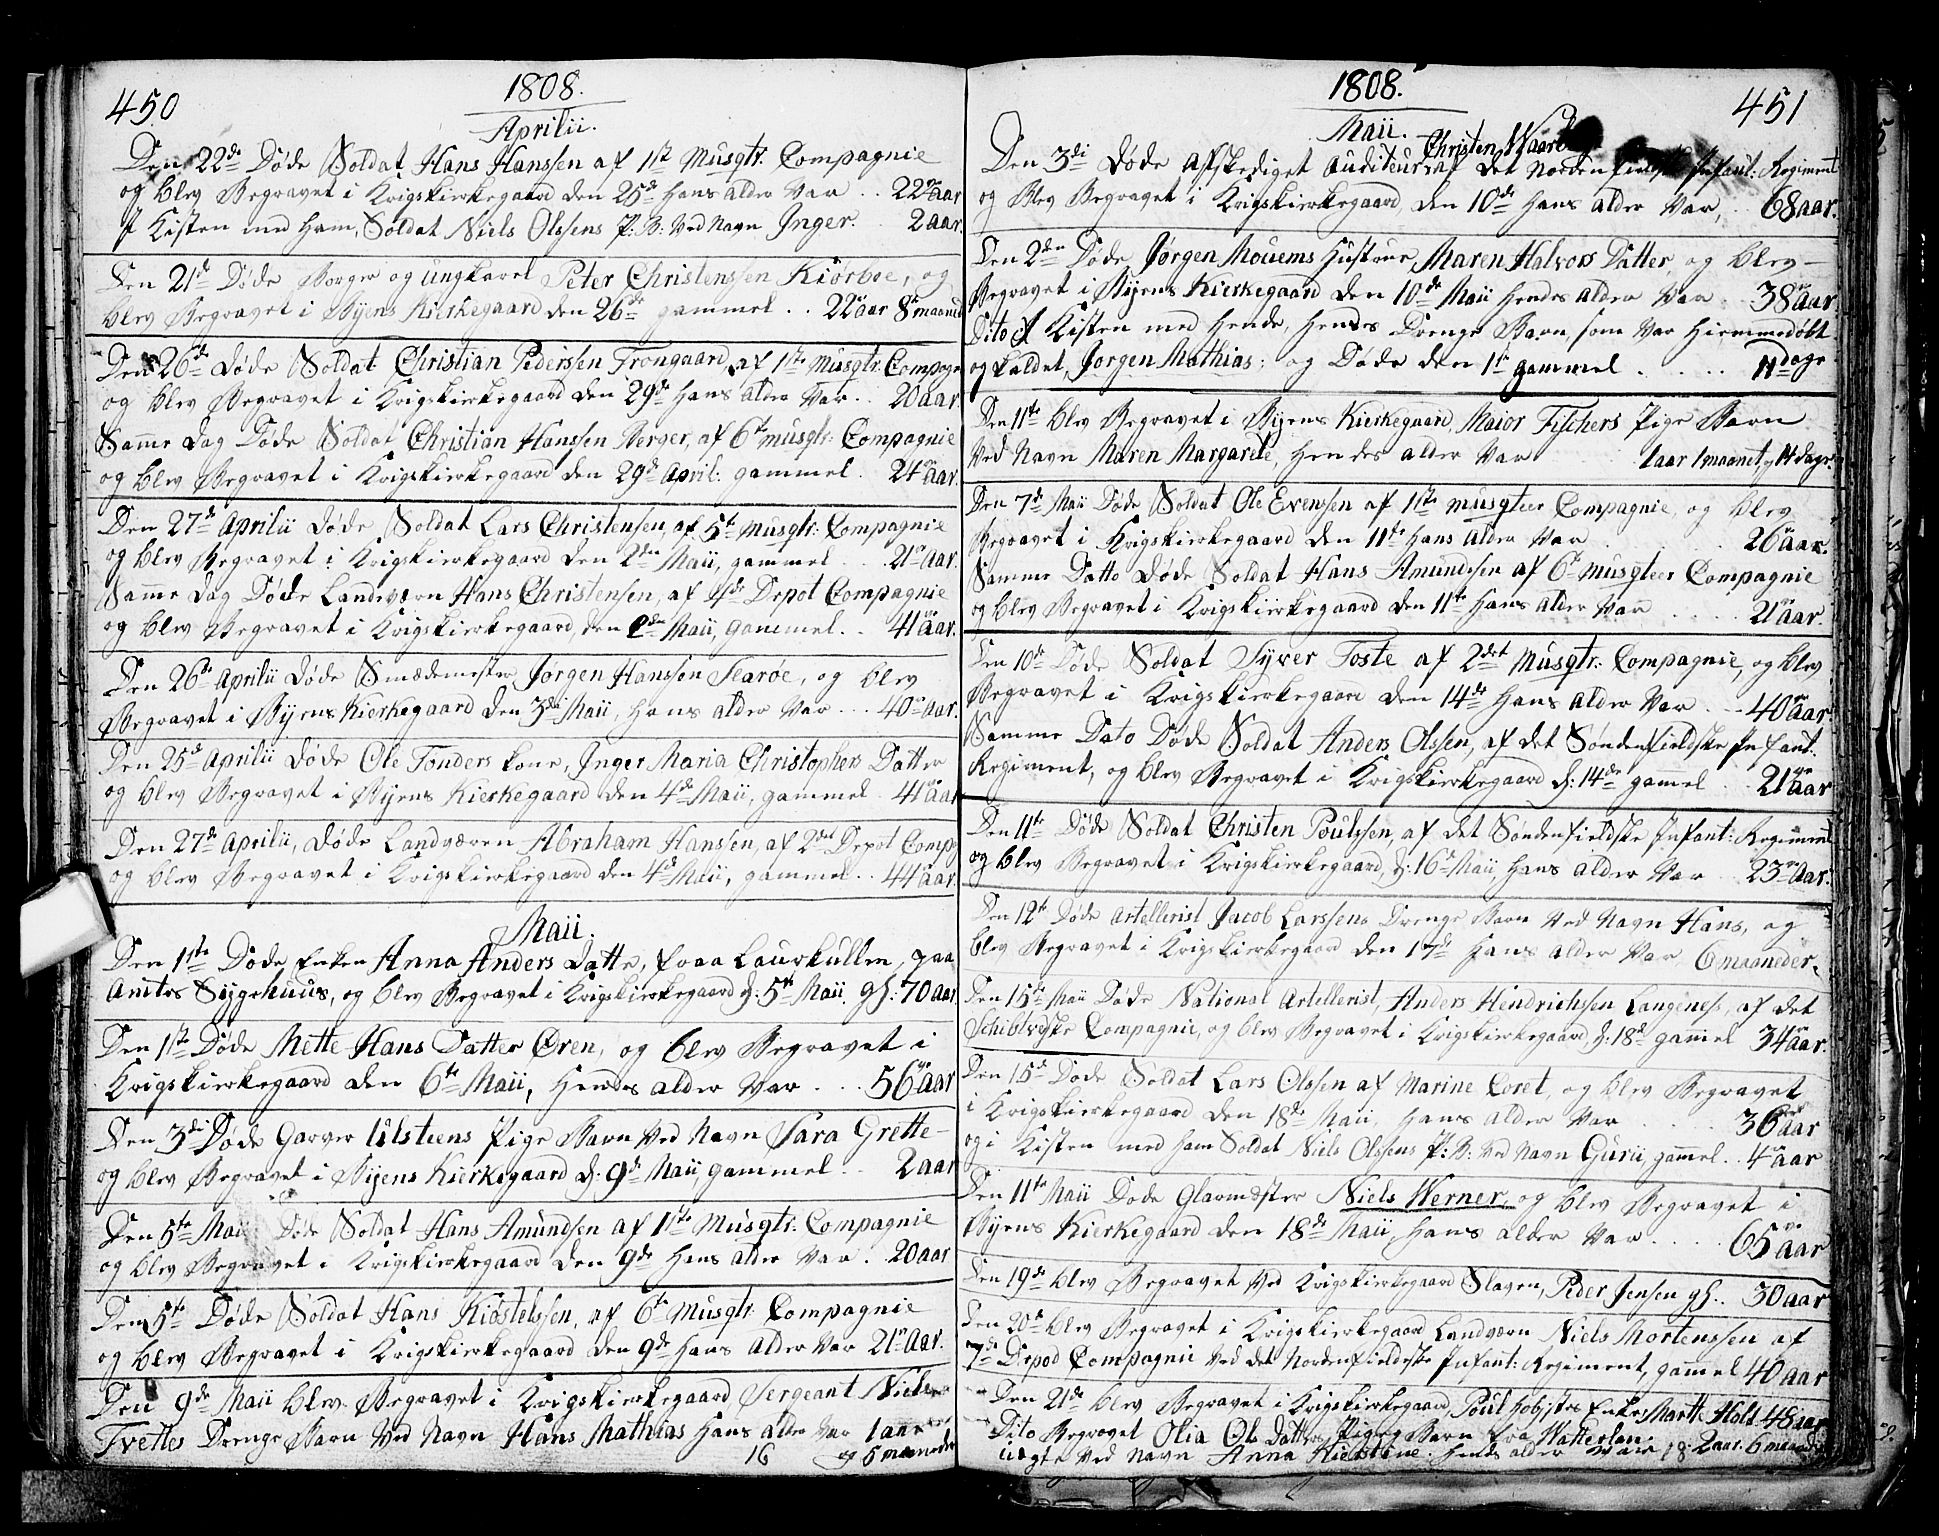 450
1808.
Aprilii.
Den 22de Døde Soldat Hans Hanssen af 1st Musqtr. Compagnie
og blev Begravet i Krigskierkegaard den 25d Hans alder var . 22 aar
I Kisten med ham, Soldat Niels Olssens P: B: Ved Navn Inger. 2 aar.
Den 21d Døde Borger og ungkarl Peter Christenssen Kiørboe, og
blev Begravet i Byens Kierkegaard den 26de gammel . . 22 aar 8te maaned
Den 26de Døde Soldat Christian Pederssen Frongaard, af 1ste Musqtr: Compagn
og blev Begravet i Krigskierkegaard den 29de Hans alder Var . . 20 aar
Samme dag Døde Soldat Christian Hanssen Berger, af 6te musqtr: Compagnie
og blev Begravet i Krigskierkegaard den 29d April: gammel . 24 aar.
Den 27d Aprilii Døde Soldat Lars Christensen, af 5te Musqtr: Compagnie
og blev Begravet i Krigskierkegaard den 2den Maii, gammel . . . 21 Aar.
Samme dag Døde Landværn Hans Christensen, af 4de Depot Compagnie
og blev Begravet i Krigskierkegaard, den 2den Maii, gammel . . 41 aar.
Den 26de Aprilii Døde Smædemester Jørgen Hanssøn Searøe, og blev
Begravet i Byens Kierkegaard den 3di Maii, Hans alder Var . . . 40 Aar.
Den 25d Aprilii Døde Ole Tønders kone, Inger Maria Christophers Datter
og blev Begravet i Byens Kierkegaard den 4de Maii, gammel . 41 aar
Den 27d Aprilii, Døde Landværen Abraham Hanssen, af 2det Depot Comp
og blev Begravet i Krigskierkegaard den 4d Maii, gammel . . 44 aar.
Maii.
Den 1ste Døde Enken Anna Anders Datte, fraa Laurkullen, paa
Amtes Sygehuus, og blev Begravet i Krigskierkegaard d: 5te Maii, gl: 70 aar
Den 1ste Døde Mette Hans Datter Øren, og blev Begravet i
Krigskierkegaard den 6te Maii, Hendes alder Var . . . 56 aar
Den 3di Døde Garver Ulsteens Pige Barn Ved Navn Sara Grette-
og blev Begravet i Byens Kierkegaard d: 9d Maii, gammel . . 2 aar
Den 5te Maii Døde Soldat Hans Amundsen af 1ste Musqtr: Compagnie
og blev Begravet i Krigskierkegaard den 9de Hans alder Var . 20 aar
Den 5te Døde Soldat Hans Kiøstelssen, af 6te Musqtr. Compagnie
og blev Begravet i Krigskierkegaard den 9d Hans alder Var 21 Aar.
Den 9de Maii blev Begravet i Krigskierkegaard Sergeant Niels
Tvettes Drenge Barn Ved Navn Hans Mathias Hans alder Var 1 aar
16 og 5 maaneder
451
1808.
Maii. Christen Waar
Den 3di Døde afskediget Auditeur af det Nordenfieldske Infant: Regiment
og Blev Begravet i Krigskierkegaard, den 10de Hans alder Var, . . 68 aar.
Den 2den Døde Jørgen Mouems Hustrue, Maren Halvors Datter, og blev-
Begravet i Byens Kierkegaard den 10de Maii Hendes alder Var . . 38 aar
Dito I Kisten med Hende, Hendes Drenge Barn, som Var Hiemmedøbt
og kaldet, Jørgen Mathias: og Døde den 1te gammel . . . . . 11 dage
Den 11te blev Begravet i Byens Kierkegaard, Maior Fischers Pige Barn
Ved Navn Maren Margarete, Hendes alder Var 1 aar 1 maanet, og 14 dage.
Den 7de Maii Døde Soldat Ole Evensen af 1ste musqteer Compagnie, og blev
Begravet i Krigskierkegaard den 11te Hans alder Var 26 aar.
Samme Datto Døde Soldat Hans Amundsen af 6te musqteer Compagnie
og blev Begravet i Krigskierkegaard den 11te Hans alder Var . . . . . 21 aar.
Den 10de Døde Soldat Syver Foste af 2det Musqtr. Compagnie, og blev
Begravet i Krigskierkegaard den 14de Hans alder Var . . 40 aar
Samme Dato Døde Soldat Anders Olssen, af det Søndenfieldske Infant.
Regiment, og blev Begravet i Krigskierkegaard d: 14de gamel . . 21 aar
Den 11te Døde Soldat Christen Poulssen, af det Søndenfieldske Infant: Regiment
og blev Begravet i Krigskierkegaard, d: 16d Maii, Hans alder Var . . 23 Aar.
Den 12te Døde Artellerist Jacob Larssens Drenge Barn Ved Navn Hans, og
blev Begravet i Krigskierkegaard den 17de Hans alder Var, 6 maaneder.
Den 15te Maii Døde National Artellerist, Anders Hendrichsen Langeness, af det
Schibtvedske Compagnie, og blev Begravet i Krigskierkegaard, d: 18d gamel 34 aar.
Den 15d Døde Soldat Lars Olssen af Marine Coret, og blev Begravet
i Krigskierkegaard den 18de Maii, Hans alder Var . . . . . 36 aar
og i Kisten med ham Soldat Niels Olssens P: B: Ved Navn Gurii, gammel . . 4 aar
Den 11te Maii Døde Glarmester Niels Werner, og blev Begravet i
Byens Kierkegaard den 18de Maii, Hans alder Var . . . . . 65 aar
Den 19de blev Begravet Ved Krigskierkegaard Slaven, Peder Jensen gl. . 30 aar
Den 20d blev Begravet i Krigskierkegaard Landværn Niels Mortenssen af
7de Depod Compagnie Ved det Nordenfieldske Infant: Regiment, gammel 40 aar
Den 21de blev Begravet i Krigskierkegaard, Poul Enke Marthe Holt 48 aar
Dito Begravet Olia Ols Datters Pige Barn fra Watterland
uægte Ved Navn Anna Kierstine: Hendes alder 2 aar. 6 maaneder